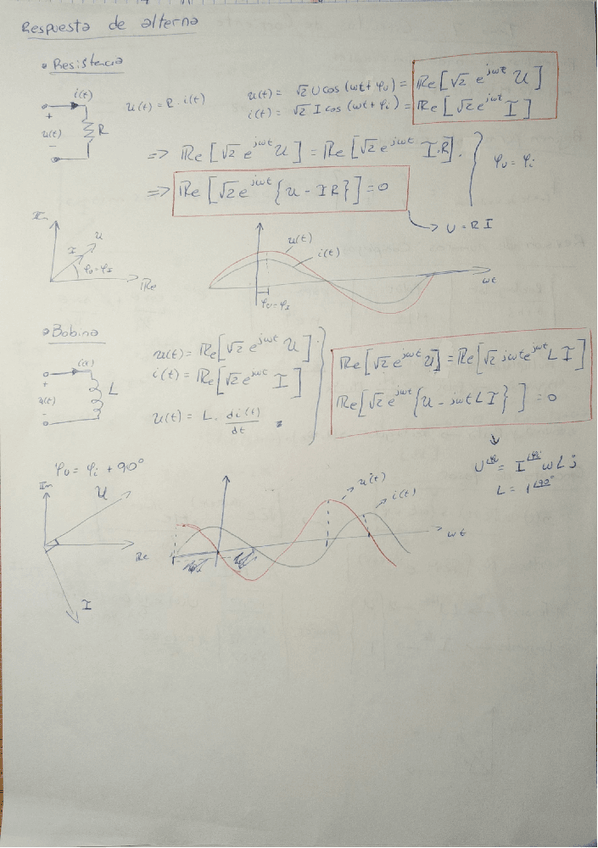 Respuesta de alterna
• Resistencia
i(t)
+
u(t)
-
R
u(t) = R · i(t)
u(t) = √2 U cos (ωt + φᵤ) = Re[√2 e^jωt U]
i(t) = √2 I cos (ωt + φᵢ) = Re[√2 e^jωt I]
=> Re[√2 e^jωt U] = Re[√2 e^jωt I·R].
φᵤ = φᵢ
=> Re[√2 e^jωt {U - IR}] = 0
U = R I
Im
U
I
φᵤ=φᵢ
Re
u(t)
i(t)
φᵤ=φᵢ
ωt
• Bobina
+
u(t)
-
L
u(t) = Re[√2 e^jωt U]
i(t) = Re[√2 e^jωt I]
u(t) = L · di(t)/dt
Re[√2 e^jωt U] = Re[√2 jωt e^jωt L I]
Re[√2 e^jωt {U - jωt L I}] = 0
= I ωLj
φᵤ = φᵢ + 90°
Im
U
Re
I
u(t)
i(t)
ωt